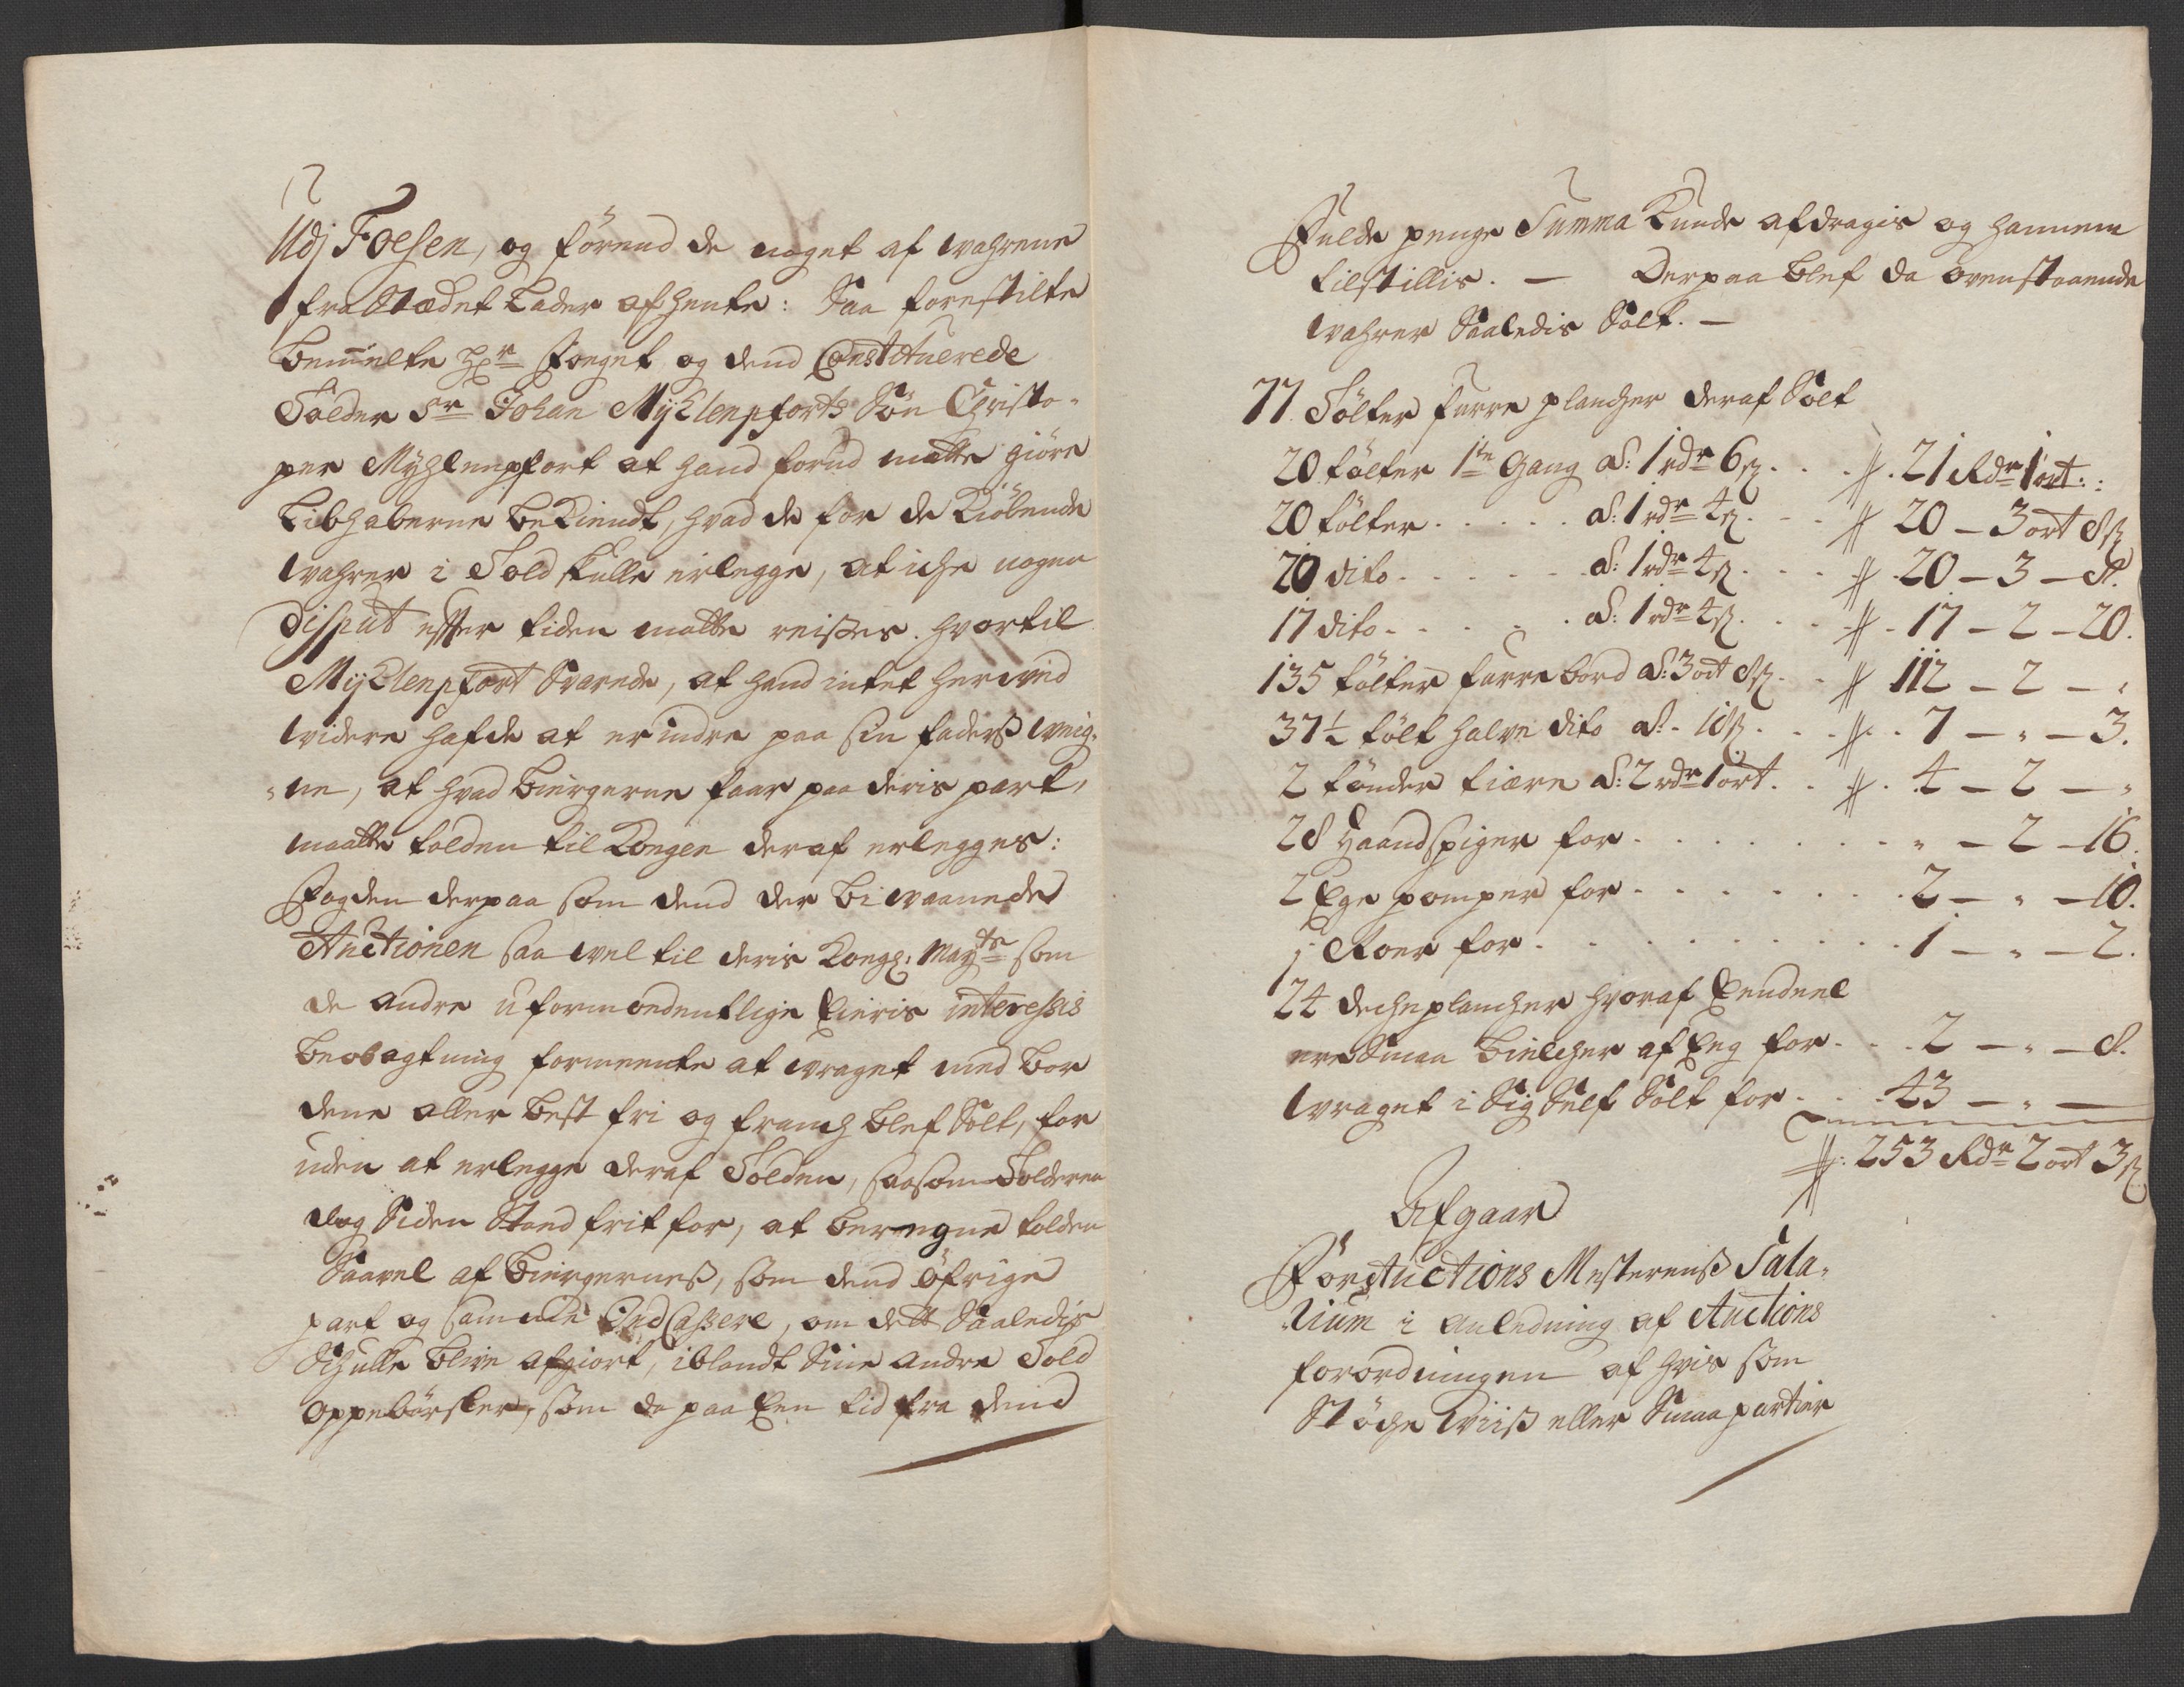 Udj Foesen, og förend de noget af wahrene
fra Stædet Lader afhente: Saa forestilte
bemelte Hr Foeget og dend Constituerede
Tolder Sr Johan Myhlenpforts Sön Christo-
per Myhlenpfort at hand forud motte giöre
Libhaberne bekiendt, hvad de for de Kiöbende
wahrer i Told skulle erlegge, at iche nogen
disput effter tiden motte reises. hvortil
Myhlenpfort Svarede, at hand intet herwed
widere hafde at erindre paa sin faders weig-
ne, at hvad biergerne faar paa deris part,
maatte tolden til Kongen deraf erlegges:
Fogden derpaa som dend der bi waanede
Auctionen saa wel til deris Kongl: Mayts som
de andre uformondentlige Eieris interessis
beobagtning formeente at wraget med bor
dene aller best fri og franch blef Solt, for
uden at erlegge deraf Tolden, saasom Tolderen
dog Siden Stoed frit for, at beregne tolden
Saavel af biergernes, som dend öfrige
part og samme Ind Cassere, om dett Saaledis
Schulle blive afgiort, iblandt Sine andre Told
oppebörsler, som da paa Een tid fra dend
Fulde penge Summa Kunde afdragis og hannem
tilstillis. — Derpaa blef da ovenstaaende
wahrer Saaledis Solt. —
77 Tölter furre plancher deraf Solt
20 tölter 1te Gang a: 1 rdr 6 s. . . 21 Rdr 1 ort:
20 tölter . . . . . a: 1 rdr 4 s. . . 20 — 3 ort 8 s
20 dito . . . . . a: 1 rdr 4 s. . . 20 — 3 — 8.
17 dito . . . . . a: 1 rdr 4 s. . . 17 — 2 — 20.
135 tölter furre bord a: 3 ort 8 s. . 112 — 2 — "
37½ tölt halve dito a: 18 s. . . 7 — " — 3.
2 tönder tiære a: 2 rdr 1 ort. . . 4 — 2 — "
28 Haandspiger for . . . . . . " — 2 — 16.
2 Ege pomper for . . . . . . 2 — " — 10.
1 Roer for . . . . . . . . . 1 — " — 2.
24 decheplancher hvoraf Eendeel
ere Smaa bielcher af Eeg for . . 2 — " — 8.
wraget i Sig Self Solt for . . . 43 — " —
253 Rdr 2 ort 3 s
Afgaar
For Auctions Mesterens Sala-
rium i anledning af Auctions
forordningen af hvis som
Stöche wiis eller Smaa partier